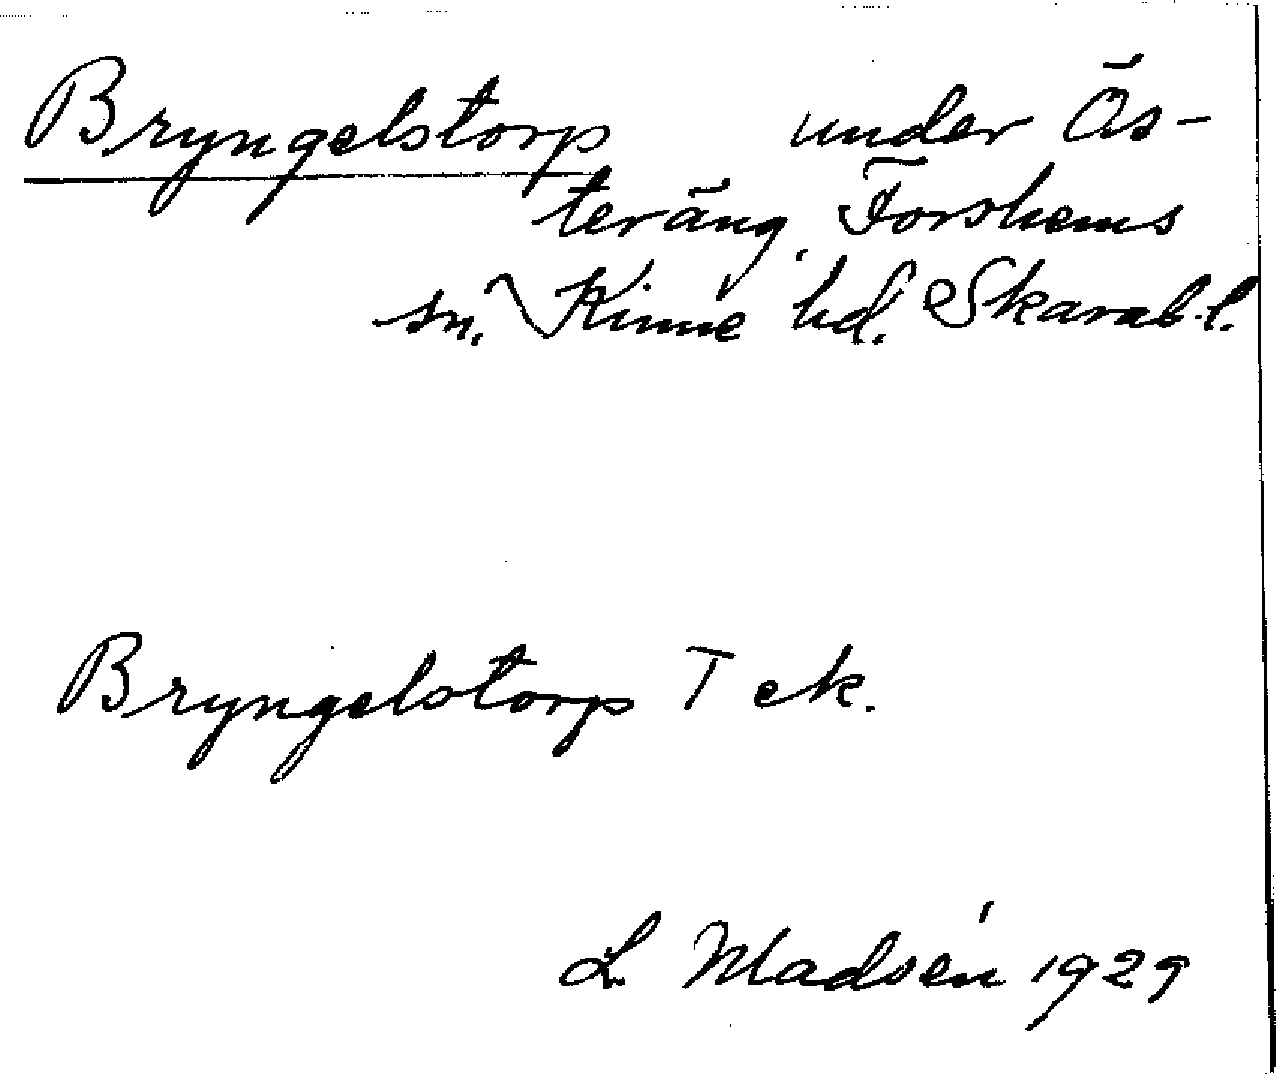 Bryngelstorp under Ös-
teräng, Forshems
sn. Kinne hd. Skarab.l.
Bryngelstorp T ek.
L Madsén 1929